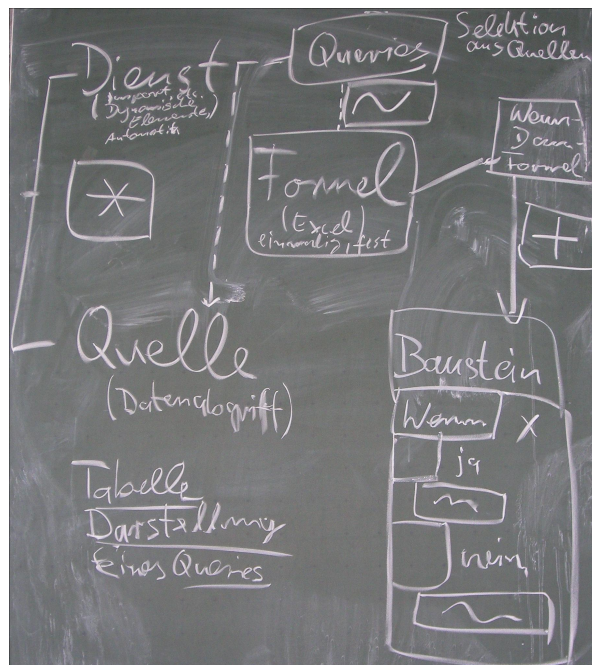 Dienst
(Import, etc.
Dynamische
Elemente,)
Automatik
Queries
Selektion
aus Quellen
Formel
(Excel)
einmalig, fest
Wenn-
Dann-
Formel
Quelle
(Datenzugriff)
Tabelle
Darstellung
eines Queries
Baustein
Wenn X
ja
nein